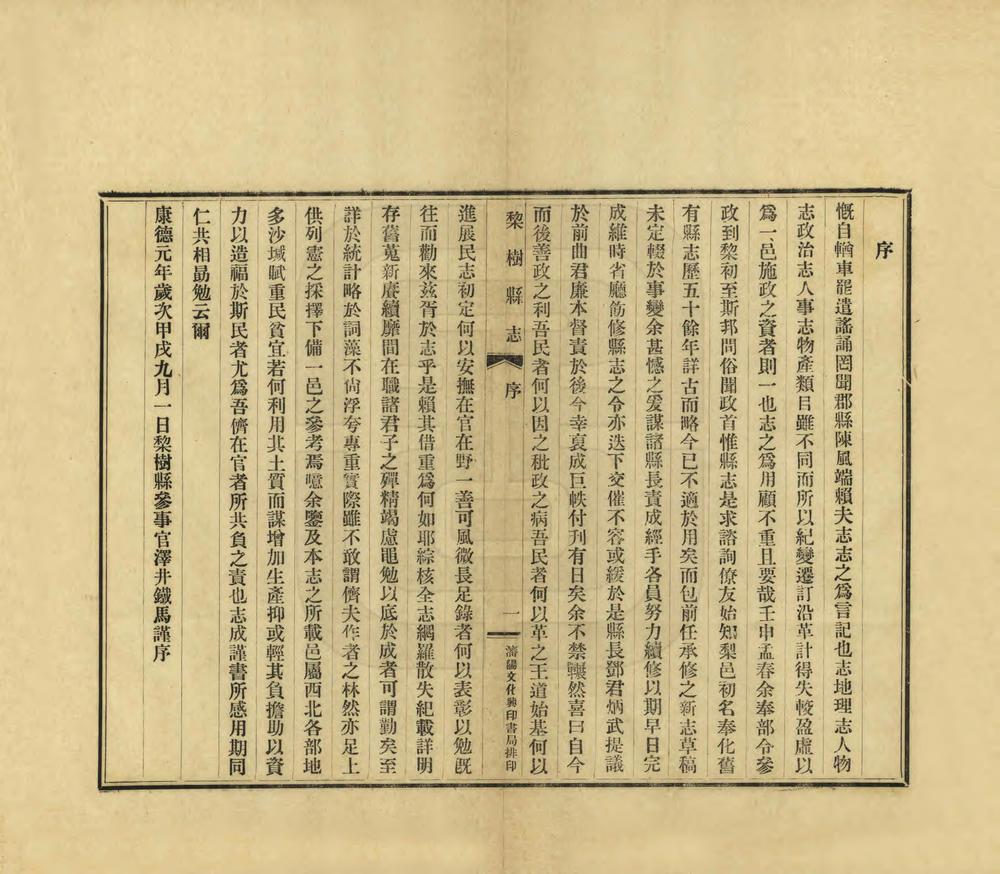 序
慨自輶車罷遣謠誦罔聞郡縣陳風端賴夫志志之爲言記也志地理志人物
志政治志人事志物產類目雖不同而所以紀變遷訂沿革計得失較盈虛以
爲一邑施政之資者則一也志之爲用顧不重且要哉壬申孟春余奉部令參
政到黎初至斯邦問俗聞政首惟縣志是求諮詢僚友始知梨邑初名奉化舊
有縣志歷五十餘年詳古而略今已不適於用矣而包前任承修之新志草稿
未定輟於事變余甚憾之爰謀諸縣長責成經手各員努力續修以期早日完
成維時省廳飭修縣志之令亦迭下交催不容或緩於是縣長鄧君炳武提議
於前曲君廉本督責於後今幸裒成巨帙付刊有日矣余不禁囅然喜曰自今
而後善政之利吾民者何以因之秕政之病吾民者何以革之王道始基何以
黎樹縣志
序
一
瀋陽文化興印書局排印
進展民志初定何以安撫在官在野一善可風微長足錄者何以表彰以勉旣
往而勸來茲胥於志乎是賴其借重爲何如耶綜核全志網羅散失紀載詳明
存舊蒐新賡續靡間在職諸君子之殫精竭慮黽勉以底於成者可謂勤矣至
詳於統計略於詞藻不尙浮夸專重實際雖不敢謂儕夫作者之林然亦足上
供列憲之採擇下備一邑之參考焉噫余鑒及本志之所載邑屬西北各部地
多沙堿賦重民貧宜若何利用其土質而謀增加生產抑或輕其負擔助以資
力以造福於斯民者尤爲吾儕在官者所共負之責也志成謹書所感用期同
仁共相勗勉云爾
康德元年歲次甲戌九月一日黎樹縣參事官澤井鐵馬謹序